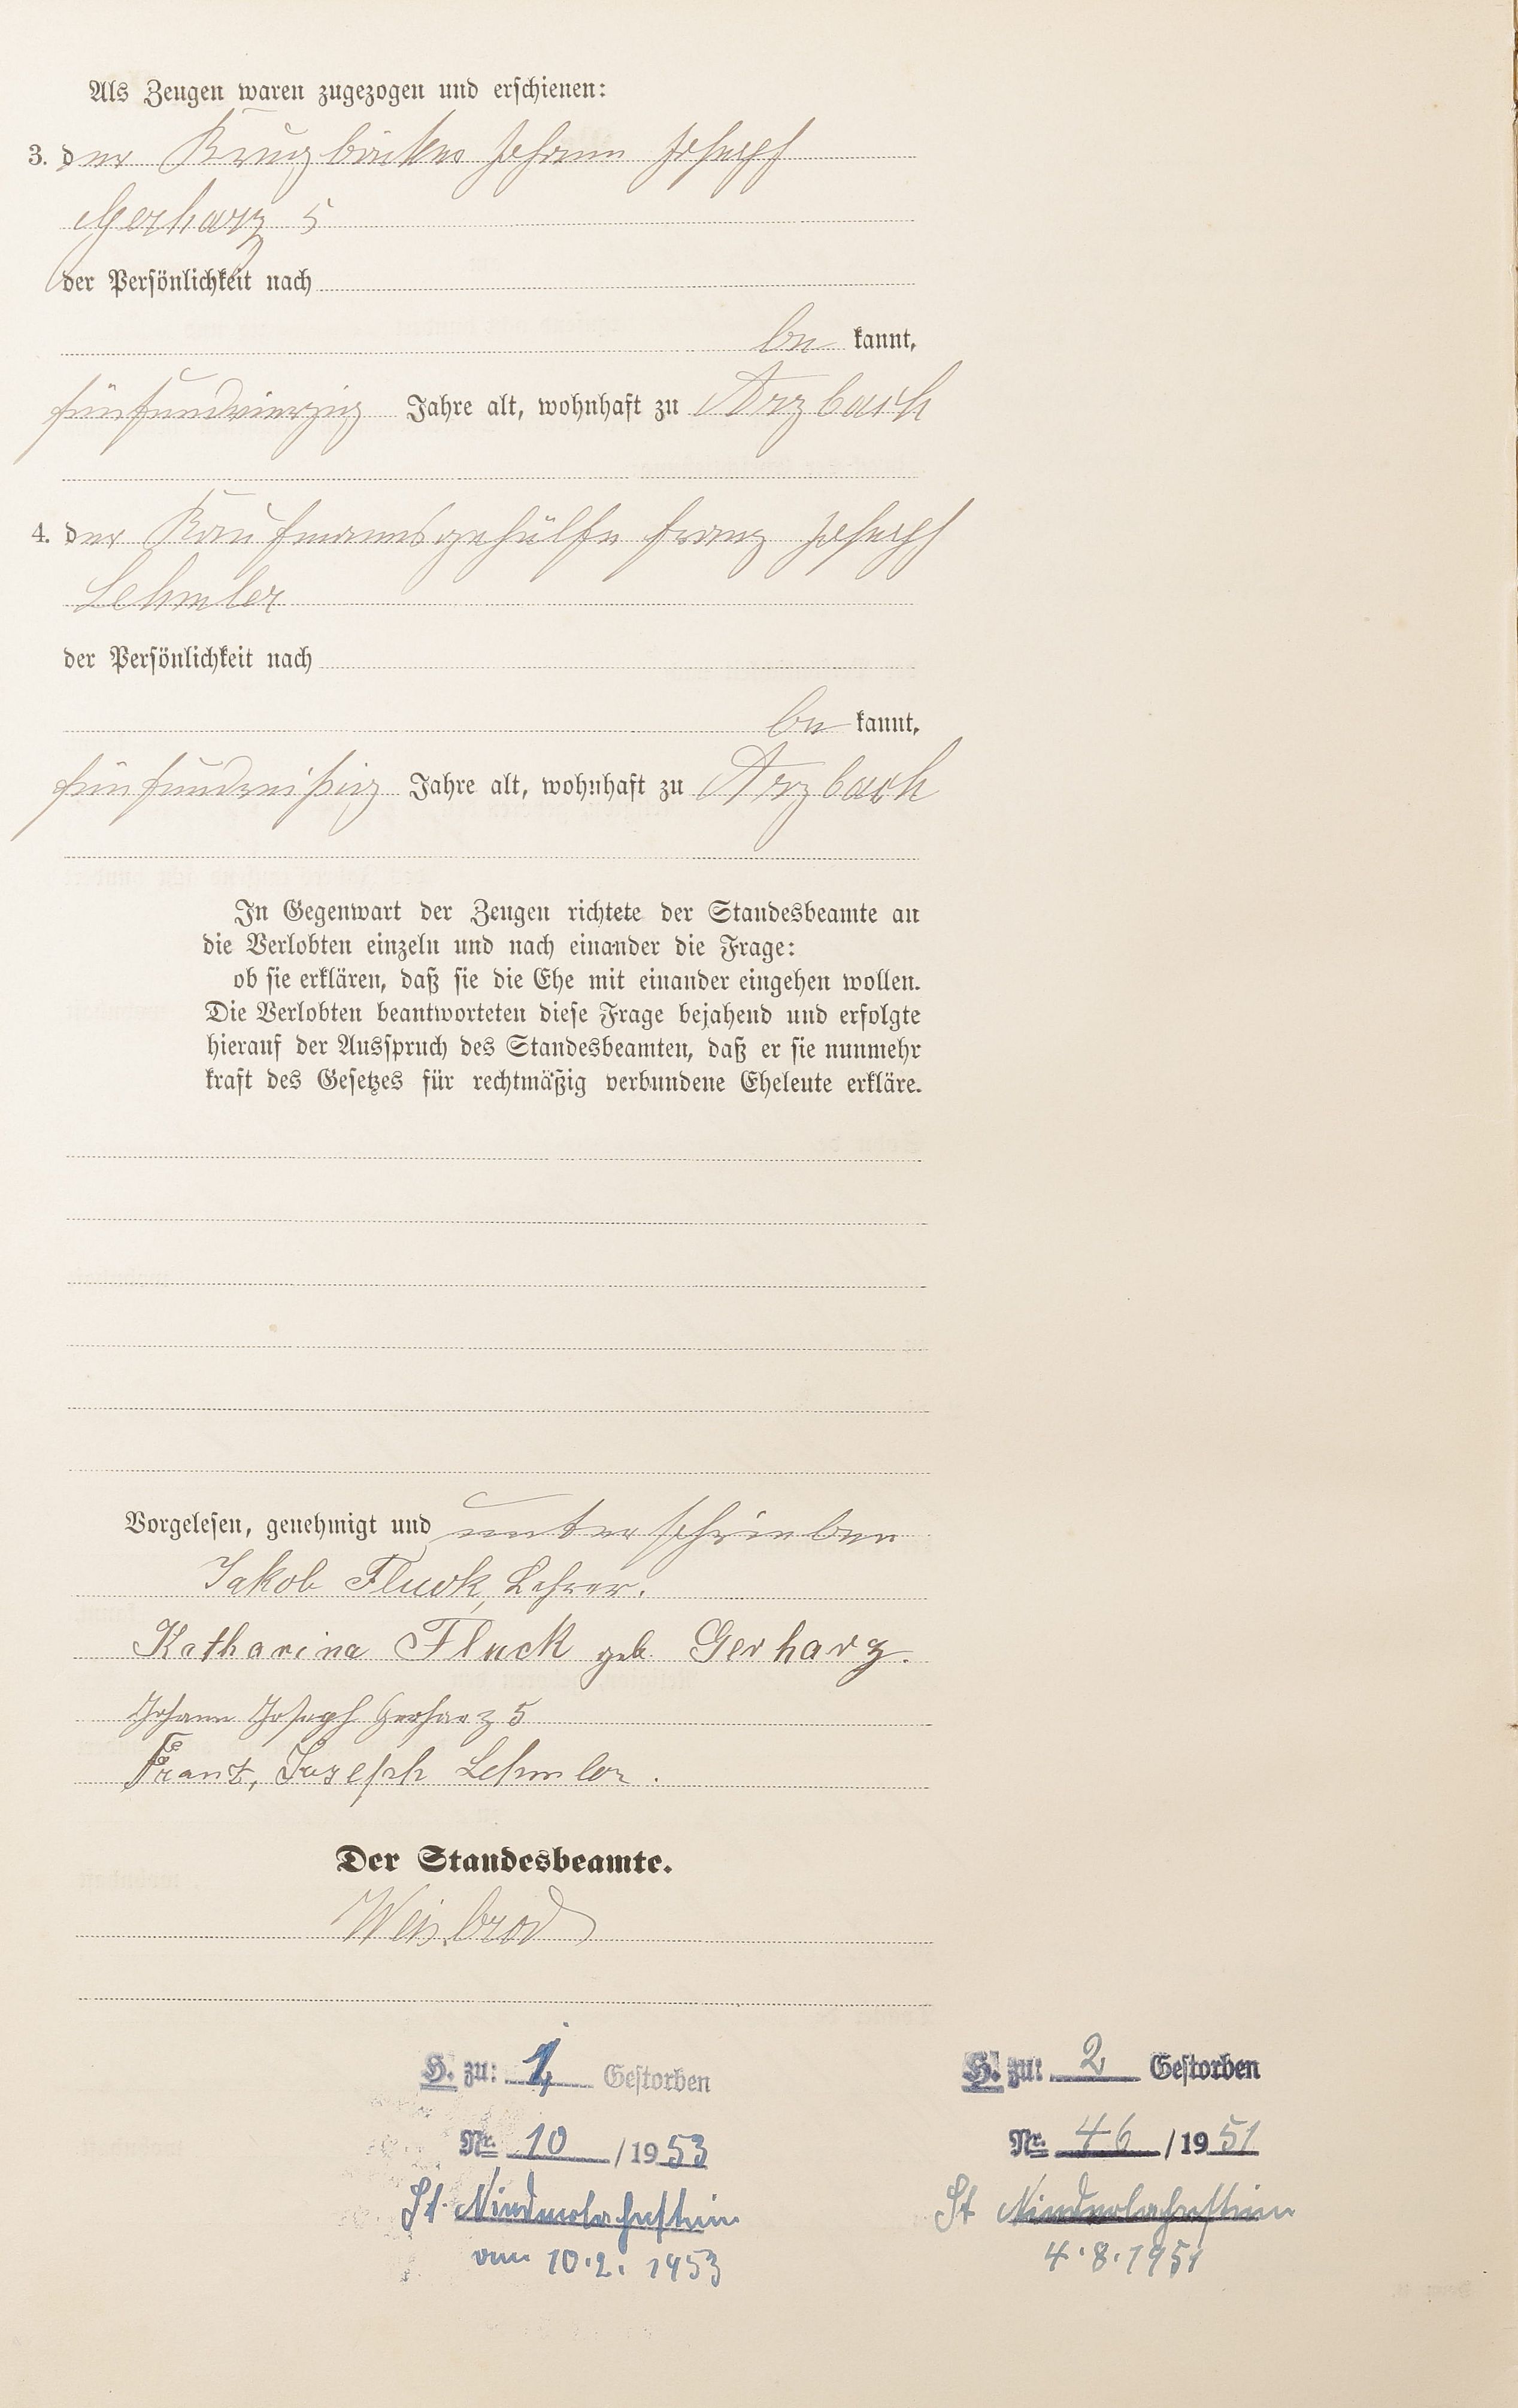 Als Zeugen waren zugezogen und erschienen:
3. der Krugbäcker Johann Joseph
Gerharz 5
der Persönlichkeit nach
be kannt,
fünfundvierzig Jahre alt, wohnhaft zu Arzbach
4. der Kaufmannsgehülfe Franz Joseph
Lehmler
der Persönlichkeit nach
be kannt,
fünfundreißig Jahre alt, wohnhaft zu Arzbach
In Gegenwart der Zeugen richtete der Standesbeamte an
die Verlobten einzeln und nach einander die Frage:
ob sie erklären, daß sie die Ehe mit einander eingehen wollen.
Die Verlobten beantworteten diese Frage bejahend und erfolgte
hierauf der Ausspruch des Standesbeamten, daß er sie nunmehr
kraft des Gesetzes für rechtmäßig verbundene Eheleute erkläre.
Vorgelesen, genehmigt und unterschrieben
Jakob Fluck, Lehrer.
Katharina Fluck geb. Gerharz.
Johann Joseph Gerharz 5
Franz, Joseph Lehmler.
Der Standesbeamte.
Weisbrod
H. zu: 1, Gestorben
Nr. 10 /1953
St. Niederlahnstein
vom 10.2. 1953
H. zu: 2 Gestorben
Nr. 46 /1951
St Niederlahnstein
4.8.1951